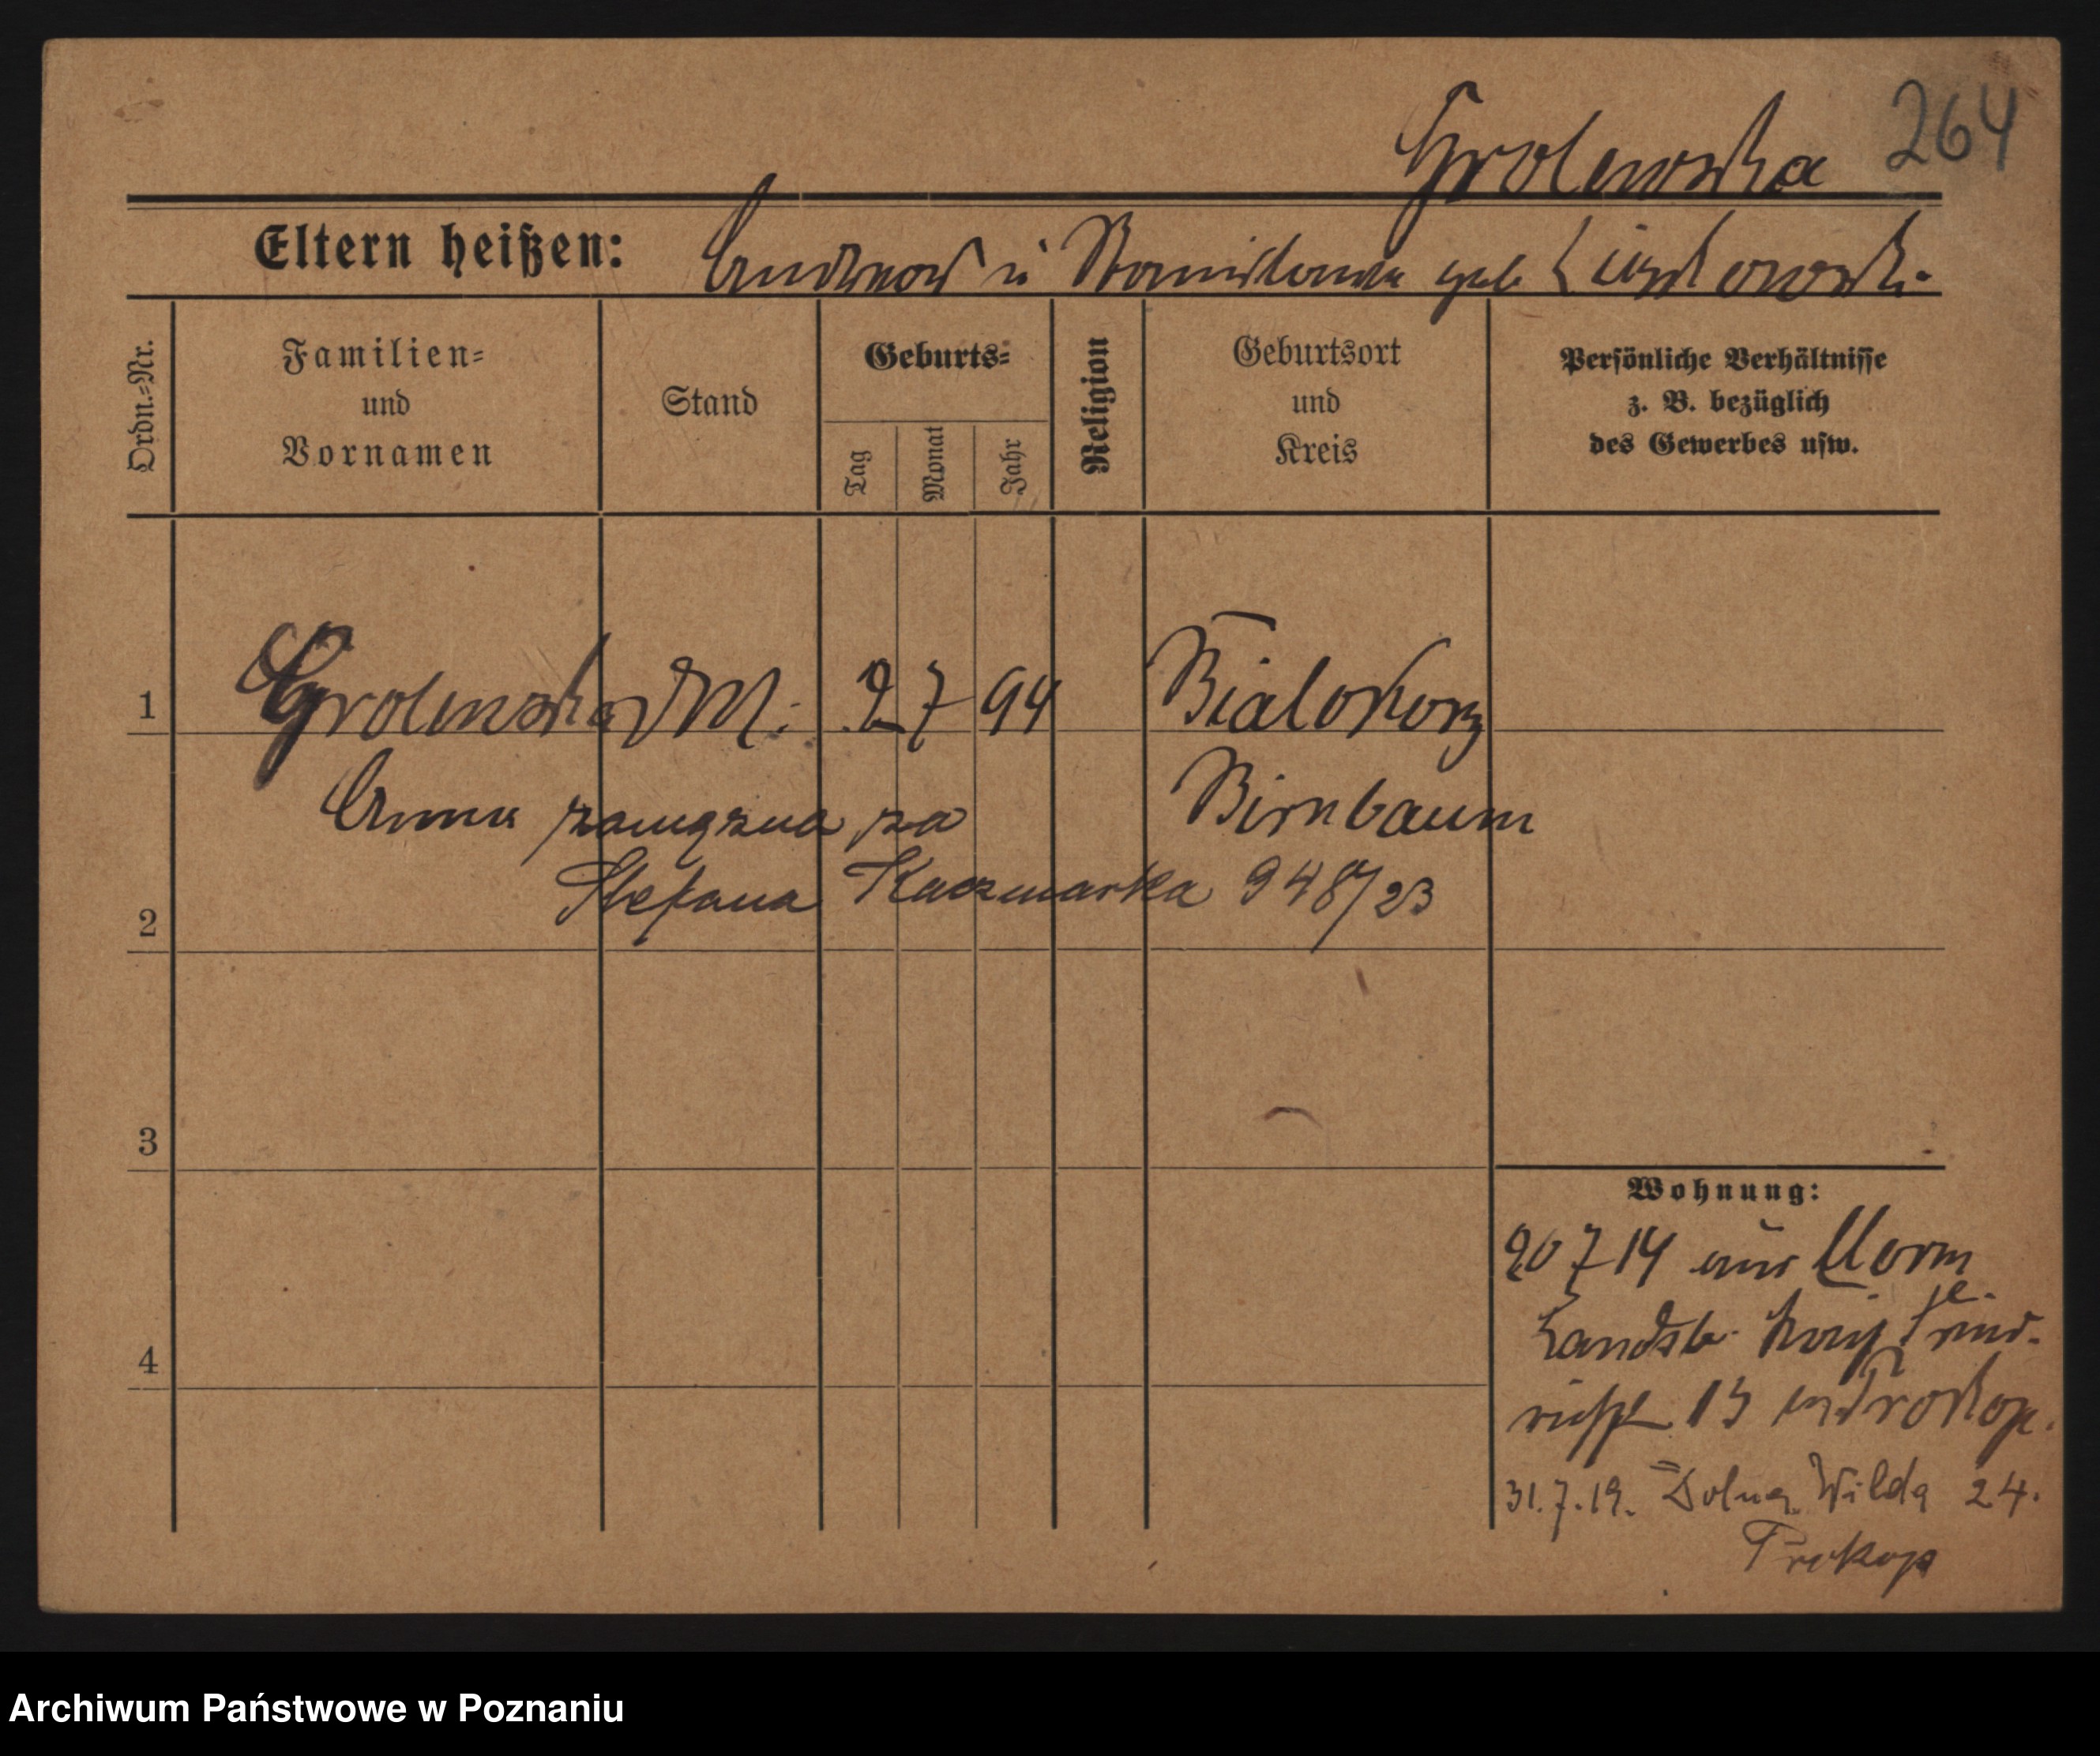 264
Grolewska
Eltern heißen: Andreas u Stanislawa geb
Ordn.=Nr.
Familien=
und
Vornamen
Stand
Geburts=
Tag
Monat
Jahr
Religion
Geburtsort
und
Kreis
Persönliche Verhältnisse
z. B. bezüglich
des Gewerbes usw.
1 Grolewska DM. 2 7 94 Bialokosz
Anna zamężna za Birnbaum
Stefana Kaczmarka 948/23
2
3
4
Wohnung:
20 7 14 aus
Landsb.
13 Prokop.
31.7.19. Dolna Wilda 24.
Prokop
Archiwum Państwowe w Poznaniu